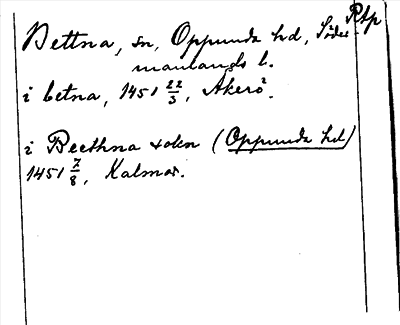 Rtp
Bettna, sn, Oppunda hd, Söder
manlands l.
i betna, 1451 22/3, Åkerö.
i Beethna sokn (Oppunda hd)
1451 7/8, Kalmar.